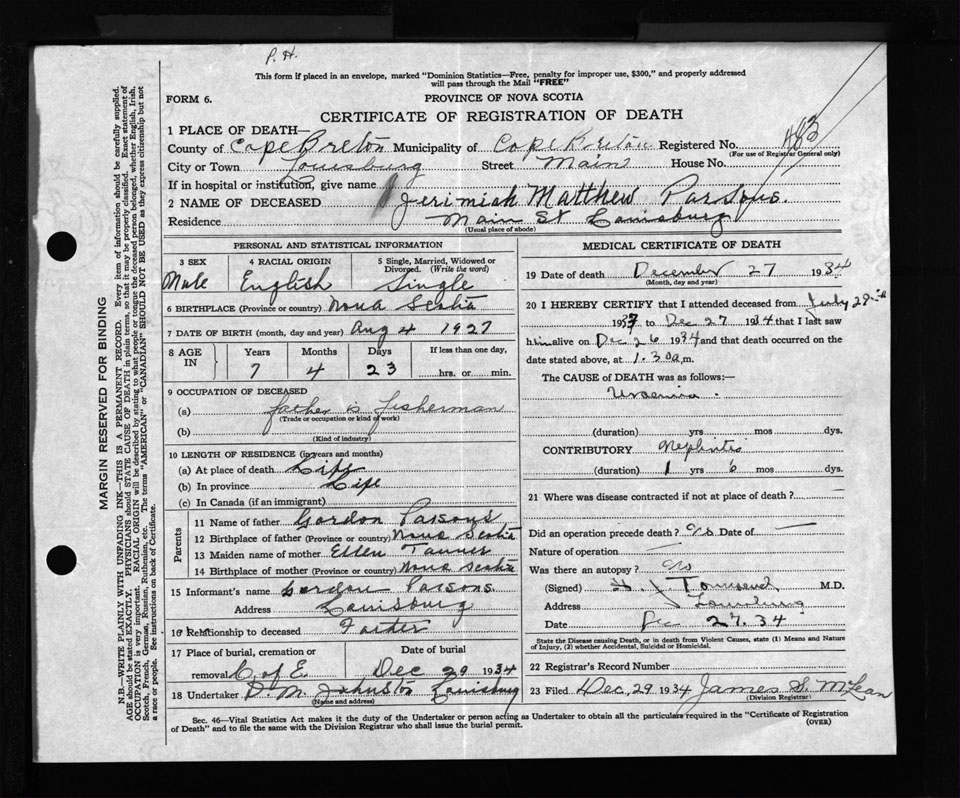 P. H.
This form if placed in an envelope, marked "Dominion Statistics—Free, penalty for improper use, $300," and properly addressed
will pass through the Mail "FREE"
FORM 6.
PROVINCE OF NOVA SCOTIA
CERTIFICATE OF REGISTRATION OF DEATH
483
1 PLACE OF DEATH—
County of Cape Breton Municipality of Cape Breton Registered No.
(For use of Registrar General only)
City or Town Louisburg Street Main House No.
If in hospital or institution, give name
2 NAME OF DECEASED Jerimiah Matthew Parsons.
Residence Main St Louisburg
(Usual place of abode)
PERSONAL AND STATISTICAL INFORMATION
3 SEX Male
4 RACIAL ORIGIN English
5 Single, Married, Widowed or Divorced. (Write the word) Single
6 BIRTHPLACE (Province or country) Nova Scotia
7 DATE OF BIRTH (month, day and year) Aug 4 1927
8 AGE IN Years 7 Months 4 Days 23 If less than one day, hrs. or min.
9 OCCUPATION OF DECEASED
(a) father is fisherman
(Trade or occupation or kind of work)
(b)
(Kind of industry)
10 LENGTH OF RESIDENCE (in years and months)
(a) At place of death Life
(b) In province Life
(c) In Canada (if an immigrant)
Parents
11 Name of father Gordon Parsons
12 Birthplace of father (Province or country) Nova Scotia
13 Maiden name of mother Ellen Tanner
14 Birthplace of mother (Province or country) Nova Scotia
15 Informant's name Gordon Parsons
Address Louisburg
16 Relationship to deceased Father
17 Place of burial, cremation or removal C of E. Date of burial Dec 29 1934
18 Undertaker D. M. Johnston Louisburg
(Name and address)
MEDICAL CERTIFICATE OF DEATH
19 Date of death December 27 1934
(Month, day and year)
20 I HEREBY CERTIFY that I attended deceased from July 28th
1933 to Dec 27 1934 that I last saw
him alive on Dec 26 1934 and that death occurred on the
date stated above, at 1.30 a.m.
The CAUSE of DEATH was as follows:—
Uraemia.
(duration) yrs mos dys.
CONTRIBUTORY Nephritis
(duration) 1 yrs 6 mos dys.
21 Where was disease contracted if not at place of death?
Did an operation precede death? No Date of
Nature of operation
Was there an autopsy? No
(Signed) Townsend M.D.
Address Louisburg
Date Dec 27.34
State the Disease causing Death, or in death from Violent Causes, state (1) Means and Nature
of Injury, (2) whether Accidental, Suicidal or Homicidal.
22 Registrar's Record Number
23 Filed Dec, 29 1934 James S. McLean
(Division Registrar)
Sec. 46—Vital Statistics Act makes it the duty of the Undertaker or person acting as Undertaker to obtain all the particulars required in the "Certificate of Registration
of Death" and to file the same with the Division Registrar who shall issue the burial permit. (OVER)
MARGIN RESERVED FOR BINDING
N.B.—WRITE PLAINLY WITH UNFADING INK—THIS IS A PERMANENT RECORD. Every item of information should be carefully supplied.
AGE should be stated EXACTLY. PHYSICIANS should STATE CAUSE OF DEATH in plain terms, so that it may be properly classified. Exact statement of
OCCUPATION is very important. RACIAL ORIGIN will be described by stating to what people or tongue the deceased person belonged, whether English, Irish,
Scotch, French, German, Russian, Ruthenian, etc. The terms "AMERICAN" or "CANADIAN" SHOULD NOT BE USED as they express citizenship but not
a race or people. See instructions on back of Certificate.